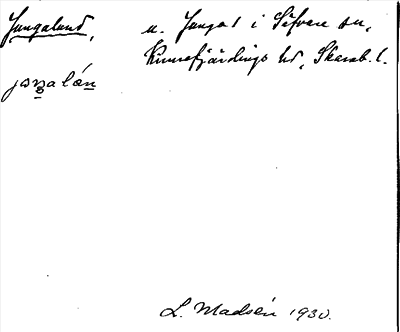 Jungalund, u. Junga 1 i Säfvare sn,
Kinnefjärdings hd, Skarab. l.
L. Madsén 1930.